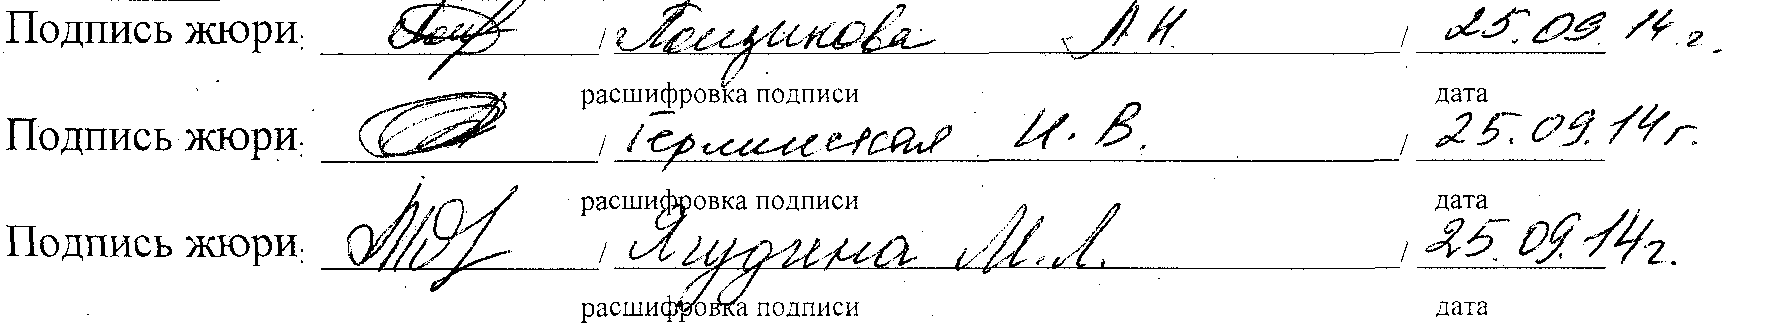 Подпись жюри: / Пощикова Л Н / 25.09.14 г.
расшифровка подписи дата
Подпись жюри: / Герлинская И. В. / 25.09.14 г.
расшифровка подписи дата
Подпись жюри: / Ягудина М. Л. / 25.09.14 г.
расшифровка подписи дата